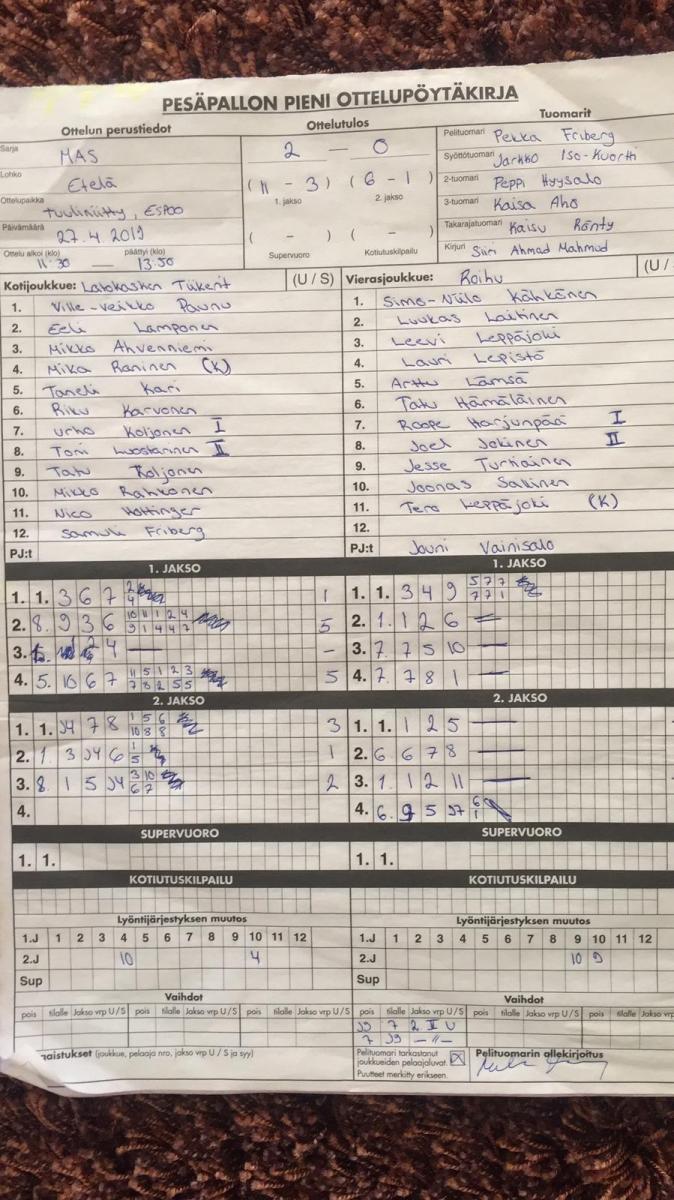 PESÄPALLON PIENI OTTELUPÖYTÄKIRJA
Ottelun perustiedot
Sarja MAS
Lohko Etelä
Ottelupaikka Tuuliniitty, ESPOO
Päivämäärä 27.4.2019
Ottelu alkoi (klo) päättyi (klo)
11.30 — 13.50
Ottelutulos
2 — 0
(11 - 3) (6 - 1)
1. jakso 2. jakso
( - ) ( - )
Supervuoro Kotiutuskilpailu
Tuomarit
Pelituomari Pekka Friberg
Syöttötuomari Jarkko Iso-Kuortti
2-tuomari Peppi Hyysalo
3-tuomari Kaisa Aho
Takarajatuomari Kaisu Rönty
Kirjuri Siiri Ahmad Mahmud
Kotijoukkue: Latokasken Tiikerit (U / S)
1. Ville-Veikko Paunu
2. Eeli Lamponen
3. Mikko Ahvenniemi
4. Mika Raninen (K)
5. Taneli Kari
6. Riku Karvonen
7. Urho Koljonen I
8. Toni Luostarinen II
9. Tatu Koljonen
10. Mikko Rahkonen
11. Nico Hottinger
12. Samuli Friberg
PJ:t
Vierasjoukkue: Roihu (U /
1. Simo-Niilo Kähkönen
2. Luukas Laitinen
3. Leevi Leppäjoki
4. Lauri Lepistö
5. Arttu Lämsä
6. Tatu Hämäläinen
7. Roope Harjunpää I
8. Joel Jokinen II
9. Jesse Turkiainen
10. Joonas Salinen
11. Tero Leppäjoki (K)
12.
PJ:t Jouni Vainisalo
1. JAKSO
1. 1. 3 6 7 2 4 1
2. 8. 9 3 6 10 11 1 2 4 9 1 4 4 7 5
3. 2 4 — -
4. 5. 10 6 7 11 5 1 2 3 7 8 2 5 5 5
1. JAKSO
1. 1. 3 4 9 5 7 7 7 7 1
2. 1. 1 2 6 —
3. 7. 7 5 10 —
4. 7. 7 8 1 —
2. JAKSO
1. 1. J4 7 8 1 5 6 10 8 8 3
2. 1. 3 J4 6 1 5 1
3. 8. 1 5 J4 3 10 6 7 2
4.
2. JAKSO
1. 1. 1 2 5 —
2. 6. 6 7 8 —
3. 1. 1 2 11 —
4. 6. 9 5 J7 6 1
SUPERVUORO
1. 1.
SUPERVUORO
1. 1.
KOTIUTUSKILPAILU
KOTIUTUSKILPAILU
Lyöntijärjestyksen muutos
1.J 1 2 3 4 5 6 7 8 9 10 11 12
2.J 10 4
Sup
Lyöntijärjestyksen muutos
1.J 1 2 3 4 5 6 7 8 9 10 11 12
2.J 10 9
Sup
Vaihdot
pois tilalle Jakso vrp U / S pois tilalle Jakso vrp U / S
Vaihdot
pois tilalle Jakso vrp U / S pois tilalle Jakso vrp
J9 7 2. II U
7 J9 —"—
naistukset (joukkue, pelaaja nro, jakso vrp U / S ja syy)
Pelituomari tarkastanut
joukkueiden pelaajaluvat. X
Puutteet merkitty erikseen.
Pelituomarin allekirjoitus